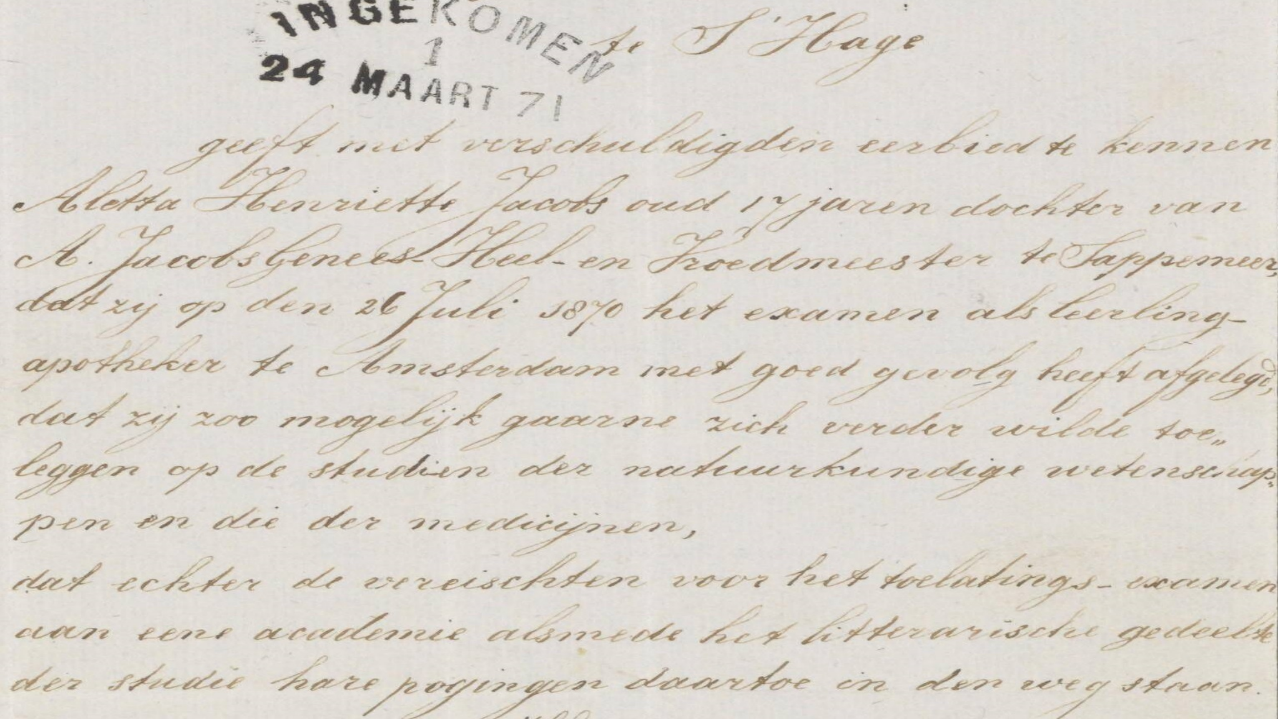 INGEKOMEN
1
24 MAART 71
te S'Hage
geeft met verschuldigden eerbied te kennen
Aletta Henriette Jacobs oud 17 jaren dochter van
A. Jacobs Genees- Heel- en Vroedmeester te Sappemeer,
dat zij op den 26 Juli 1870 het examen als leerling-
apotheker te Amsterdam met goed gevolg heeft afgelegd,
dat zij zoo mogelijk gaarne zich verder wilde toe„
leggen op de studien der natuurkundige wetenschap„
pen en die der medicijnen,
dat echter de vereischten voor het toelatings-examen
aan eene academie alsmede het litterarische gedeelte
der studie hare pogingen daartoe in den weg staan.